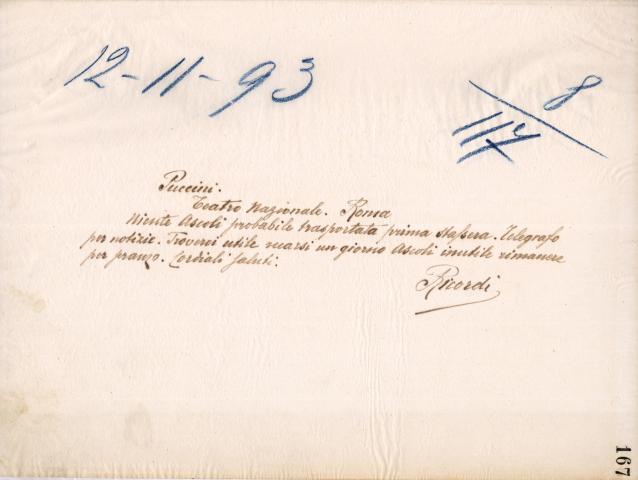 12-11-93
8
117
Puccini.
Teatro Nazionale. Roma
Niente Ascoli probabile trasportata prima stassera. Telegrafo
per notizie. Troverei utile recarsi un giorno Ascoli inutile rimanere
per pranzo. Cordiali saluti.
Ricordi
167